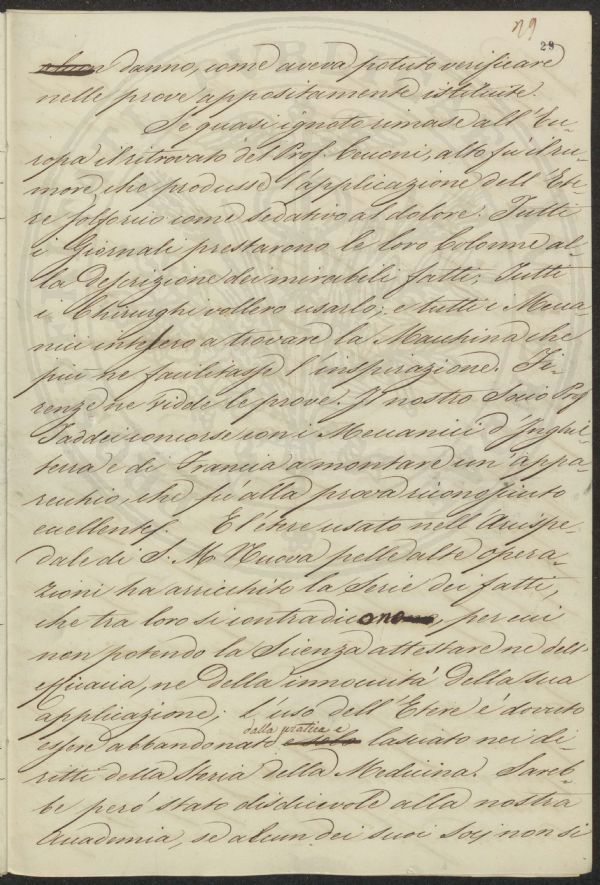 29
29
danno, come aveva potuto verificare
nelle prove appositamente istituite.
Se quasi ignoto rimase all'Eu-
ropa il ritrovato del Prof. alto fu il ru-
more, che produsse l'applicazione dell'Ete-
re solforico come sedativo al dolore. Tutti
i Giornali prestarono le loro Colonne al-
la descrizione dei mirabili fatti; Tutti
i Chirurghi vollero usarlo; e tutti i Mecca-
nici intesero a trovare la Macchina che
più ne facilitasse l'inspirazione. Fi-
renze ne vidde le prove. Il nostro Socio Prof
Taddei concorse con i Meccanici d'Inghil-
terra e di Francia a montare un appa-
recchio, che fu alla prova riconosciuto
eccellente. E l'etere usato nell'Arcispe-
dale di S. M. Nuova pelle alte opera-
zioni ha arricchito la Serie dei fatti,
che tra loro si contradicono, per cui
non potendo la Scienza attestare nè dell'
efficacia, nè della innocuità della sua
applicazione; l'uso dell'Etere è dovuto
dalla pratica e
essere abbandonato lasciato nei di-
ritti della storia della Medicina. Sareb-
be però stato disdicevole alla nostra
Accademia, se alcun dei suoi Socj non si